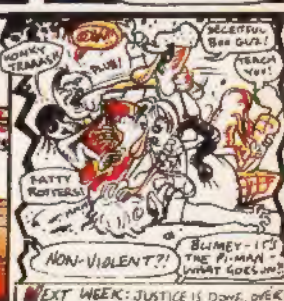 HONKY
TRANNS!
DECEITFUL
BOO GURL!
TEACH
YOU!
FATTY
ROTTERS!
NON-VIOLENT?!
BLIMEY - IT'S
THE PI-MAN -
WHAT GOES ON?!
NEXT WEEK: JUSTICE IS DONE OVER